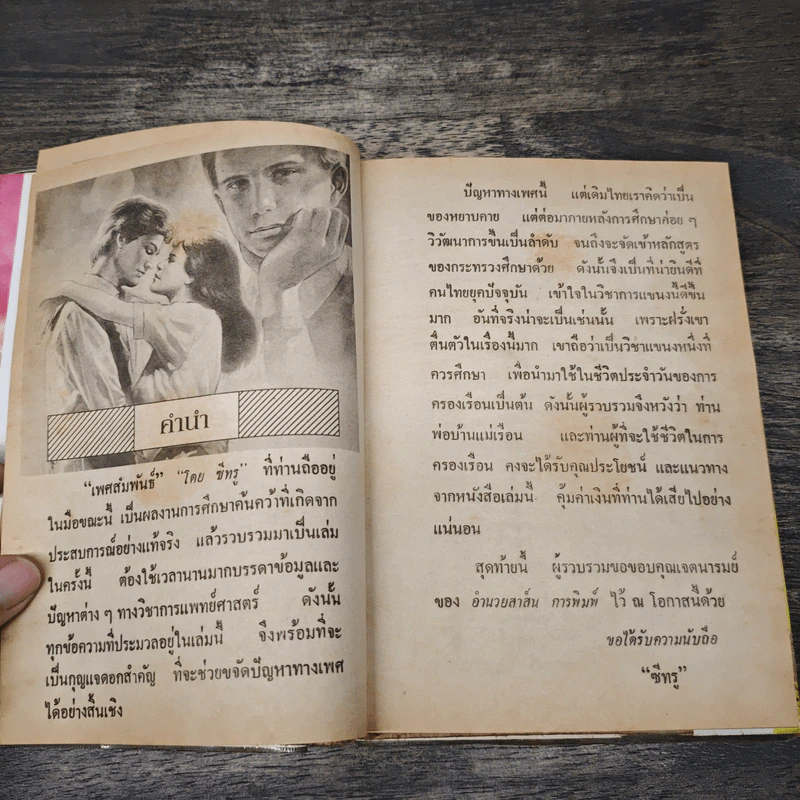 คำนำ
“เพศสัมพันธ์” “โดย ซีทรู” ที่ท่านถืออยู่
ในมือขณะนี้ เป็นผลงานการศึกษาค้นคว้าที่เกิดจาก
ประสบการณ์อย่างแท้จริง แล้วรวบรวมมาเป็นเล่ม
ในครั้งนี้ ต้องใช้เวลานานมากบรรดาข้อมูลและ
ปัญหาต่าง ๆ ทางวิชาการแพทย์ศาสตร์ ดังนั้น
ทุกข้อความที่ประมวลอยู่ในเล่มนี้ จึงพร้อมที่จะ
เป็นกุญแจดอกสำคัญ ที่จะช่วยขจัดปัญหาทางเพศ
ได้อย่างสิ้นเชิง
ปัญหาทางเพศนี้ แต่เดิมไทยเราคิดว่าเป็น
ของหยาบคาย แต่ต่อมากายหลังการศึกษาค่อย ๆ
วิวัฒนาการขึ้นเป็นลำดับ จนถึงจะจัดเข้าหลักสูตร
ของกระทรวงศึกษาด้วย ดังนั้นจึงเป็นที่น่ายินดีที่
คนไทยยุคปัจจุบัน เข้าใจในวิชาการแขนงนี้ดีขึ้น
มาก อันที่จริงน่าจะเป็นเช่นนั้น เพราะฝรั่งเขา
ตื่นตัวในเรื่องนี้มาก เขาถือว่าเป็นวิชาแขนงหนึ่งที่
ควรศึกษา เพื่อนำมาใช้ในชีวิตประจำวันของการ
ครองเรือนเป็นต้น ดังนั้นผู้รวบรวมจึงหวังว่า ท่าน
พ่อบ้านแม่เรือน และท่านผู้ที่จะใช้ชีวิตในการ
ครองเรือน คงจะได้รับคุณประโยชน์ และแนวทาง
จากหนังสือเล่มนี้ คุ้มค่าเงินที่ท่านได้เสียไปอย่าง
แน่นอน
สุดท้ายนี้ ผู้รวบรวมขอขอบคุณเจตนารมย์
ของ อำนวยสาส์น การพิมพ์ ไว้ ณ โอกาสนี้ด้วย
ขอได้รับความนับถือ
“ซีทรู”